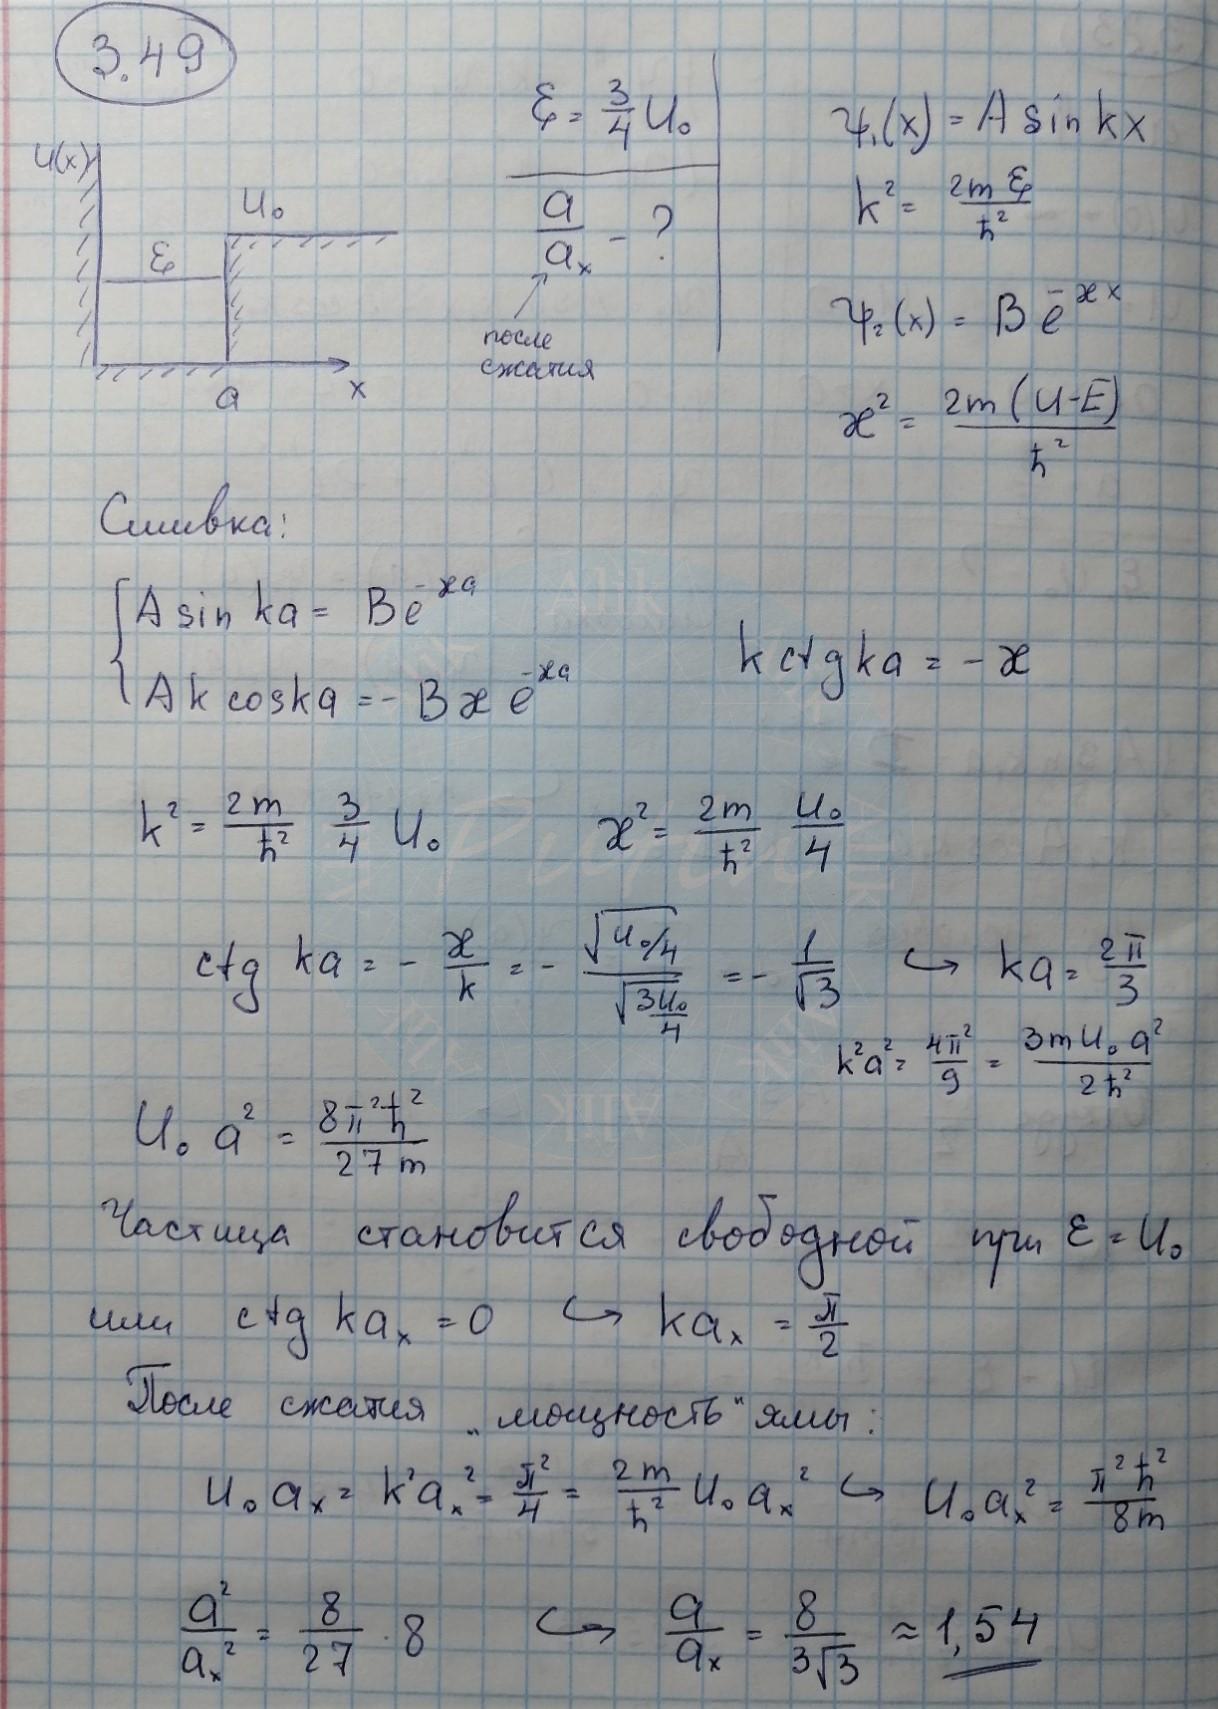 3.49
U(x)
U₀
ℰ
a
x
ℰ = 3/4 U₀
a/aₓ - ?
после
сжатия
ψ₁(x) = A sin kx
k² = 2mℰ/ħ²
ψ₂(x) = B e^(-æx)
æ² = 2m(U-E)/ħ²
Сшивка:
A sin ka = B e^(-æa)
A k cos ka = - B æ e^(-æa)
k ctg ka = - æ
k² = 2m/ħ² 3/4 U₀
æ² = 2m/ħ² U₀/4
ctg ka = - æ/k = - √(U₀/4)/√(3U₀/4) = - 1/√3 ↪ ka = 2π/3
k²a² = 4π²/9 = 3mU₀a²/2ħ²
U₀a² = 8π²ħ²/27m
Частица становится свободной при ℰ = U₀
или ctg kaₓ = 0 ↪ kaₓ = π/2
После сжатия „мощность" ямы:
U₀aₓ = k²aₓ² = π²/4 = 2m/ħ² U₀aₓ² ↪ U₀aₓ² = π²ħ²/8m
a²/aₓ² = 8/27 · 8 ↪ a/aₓ = 8/3√3 ≈ 1,54